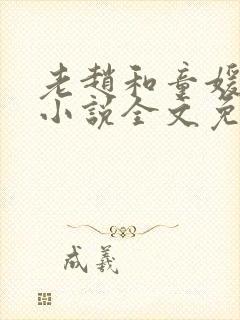 老趙和童媛
小說全文免
成羲